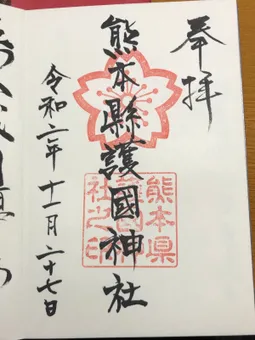 奉拝
熊本縣護國神社
令和二年十一月二十七日
熊本県
社之印